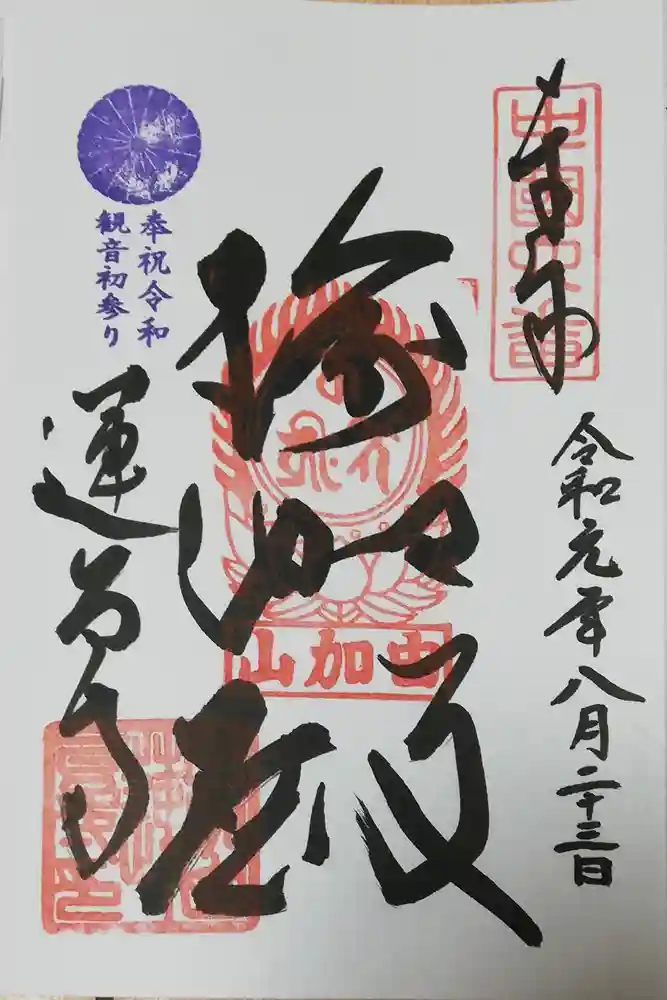 奉拝
令和元年八月二十三日
瑜伽殿
由加山
奉祝令和
観音初参り
蓮台寺